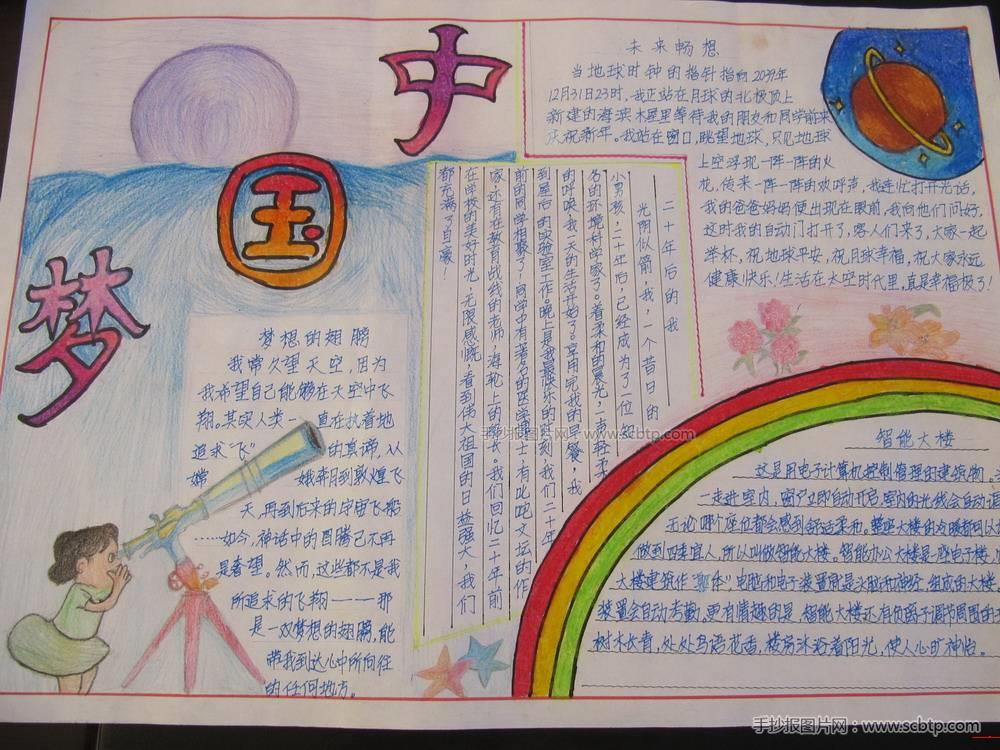 中
国
梦
未来畅想
当地球时钟的指针指向2039年
12月31日23时,我正站在月球的北极顶上
新建的海滨木屋里等待我的朋友和同学前来
庆祝新年。我站在窗口,眺望地球,只见地球
上空浮现一阵一阵的火
花,传来一阵一阵的欢呼声,我连忙打开光话,
我的爸爸妈妈便出现在眼前,我向他们问好,
这时我的自动门打开了,客人们来了,大家一起
举杯,祝地球平安,祝月球幸福,祝大家永远
健康!快乐!生活在太空时代里,真是幸福极了!
二十年后的我
光阴似箭,我,一个昔日的
小男孩,二十年后,已经成为了一位知
名的环境科学家了。着柔和的晨光,一声轻柔
的呼唤,我一天的生活开始了。享用完我的早餐,我
到屋后的实验室工作。晚上是我最快乐的时刻,我们二十年
前的同学相聚了!同学中有著名的医学博士,有叱咤文坛的作
家,还有在教育战线的老师,海轮上的船长。我们回忆二十年前
在学校的美好时光,无限感慨,看到伟大祖国的日益强大,我们
都充满了自豪!
梦想的翅膀
我常久望天空,因为
我希望自己能够在天空中飞
翔。其实人类一直在执着地
追求“飞”的真谛,从
嫦娥奔月到敦煌飞
天,再到后来的宇宙飞船
……如今,神话中的图腾已不再
是奢望。然而,这些都不是我
所追求的飞翔——那
是一双梦想的翅膀,能
带我到达心中所向往
的任何地方。
智能大楼
这是用电子计算机控制管理的建筑物。
一走进室内,窗户立即自动开启,室内的光线会自动
无论哪个座位都会感到舒适柔和。整座大楼的冷暖都可以
做到四季宜人,所以叫做智能大楼。智能办公大楼是一座电子楼,
大楼建筑作 电脑和电子装置则是头脑和神经,组成的大楼
装置会自动考勤,更有情趣的是,智能大楼还有负离子调节周围的
树木长青,处处鸟语花香,楼房沐浴着阳光,使人心旷神怡。
手抄报图片网:www.scbtp.com
手抄报图片网:www.scbtp.com